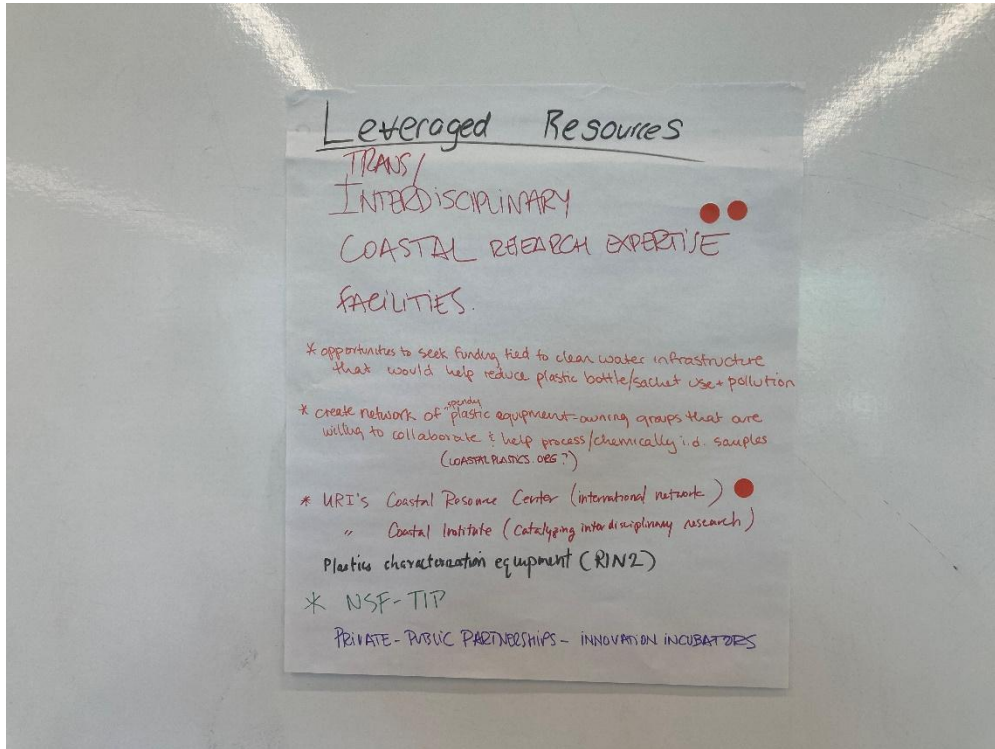 Leveraged Resources
TRANS/
INTERDISCIPLINARY
COASTAL RESEARCH EXPERTISE
FACILITIES.
* opportunities to seek funding tied to clean water infrastructure
that would help reduce plastic bottle/sachet use + pollution
* create network of spendy plastic equipment-owning groups that are
willing to collaborate & help process/chemically i.d. samples
(COASTALPLASTICS.ORG?)
* URI's Coastal Resource Center (international network)
" Coastal Institute (Catalyzing interdisciplinary research)
Plastics characterization equipment (RIN2)
* NSF-TIP
PRIVATE-PUBLIC PARTNERSHIPS - INNOVATION INCUBATORS